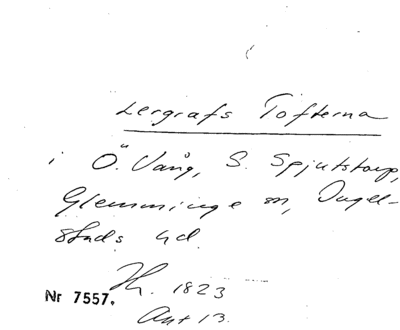 Lergrafs Tofterna
i Ö. Vång, S. Spjutstorp,
Glemminge sn, Ingel-
stads hd.
Th. 1823
Nr 7557.
Ant 13.